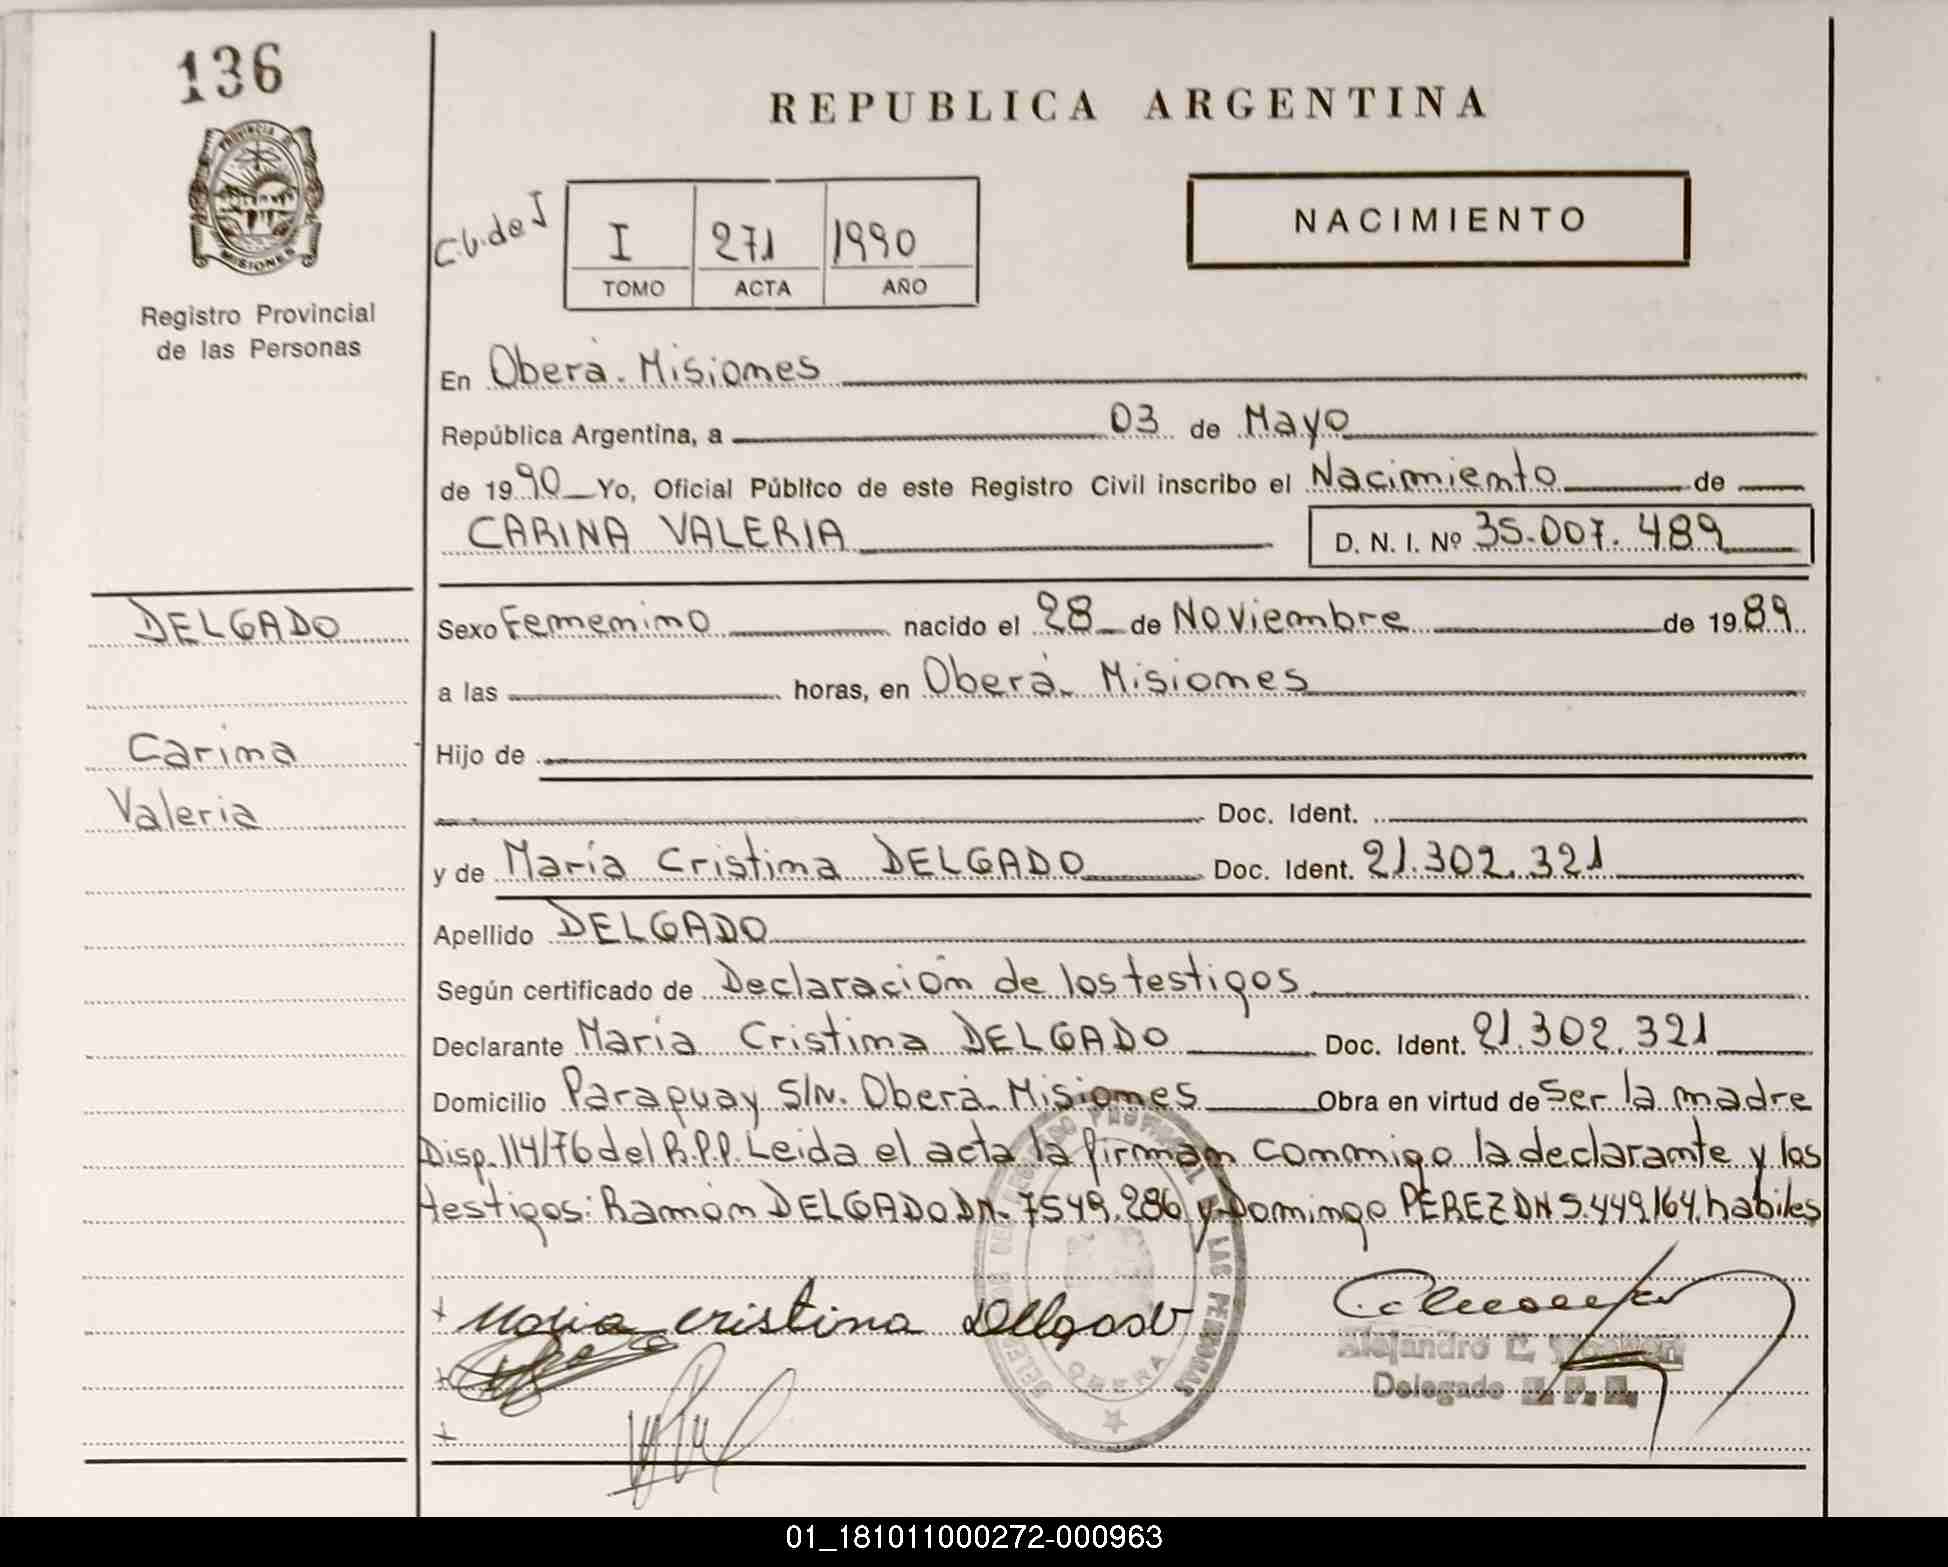 136
REPUBLICA ARGENTINA
PROVINCIA DE MISIONES
Registro Provincial
de las Personas
C.U. de I
I 271 1990
TOMO ACTA AÑO
NACIMIENTO
En Oberá. Misiones
República Argentina, a 03 de Mayo
de 1990 Yo, Oficial Público de este Registro Civil inscribo el Nacimiento de
CARINA VALERIA D. N. I. Nº 35.007.489
DELGADO
Carina
Valeria
Sexo Femenino nacido el 28 de Noviembre de 1989
a las horas, en Oberá. Misiones
Hijo de
Doc. Ident.
y de María Cristina DELGADO Doc. Ident. 21.302.321
Apellido DELGADO
Según certificado de Declaración de los testigos
Declarante María Cristina DELGADO Doc. Ident. 21.302.321
Domicilio Paraguay S/N. Oberá. Misiones Obra en virtud de ser la madre
Disp. 114/76 del R.P.P. Leida el acta la firman conmigo la declarante y los
testigos: Ramón DELGADO DN. 7549.286 y Domingo PEREZ DN 5.449.164. habiles
Maria cristina Delgado
DEL REGISTRO PROVINCIAL DE LAS PERSONAS
OBERA
Alejandro C.
Delegado R. P. P.
01_181011000272-000963